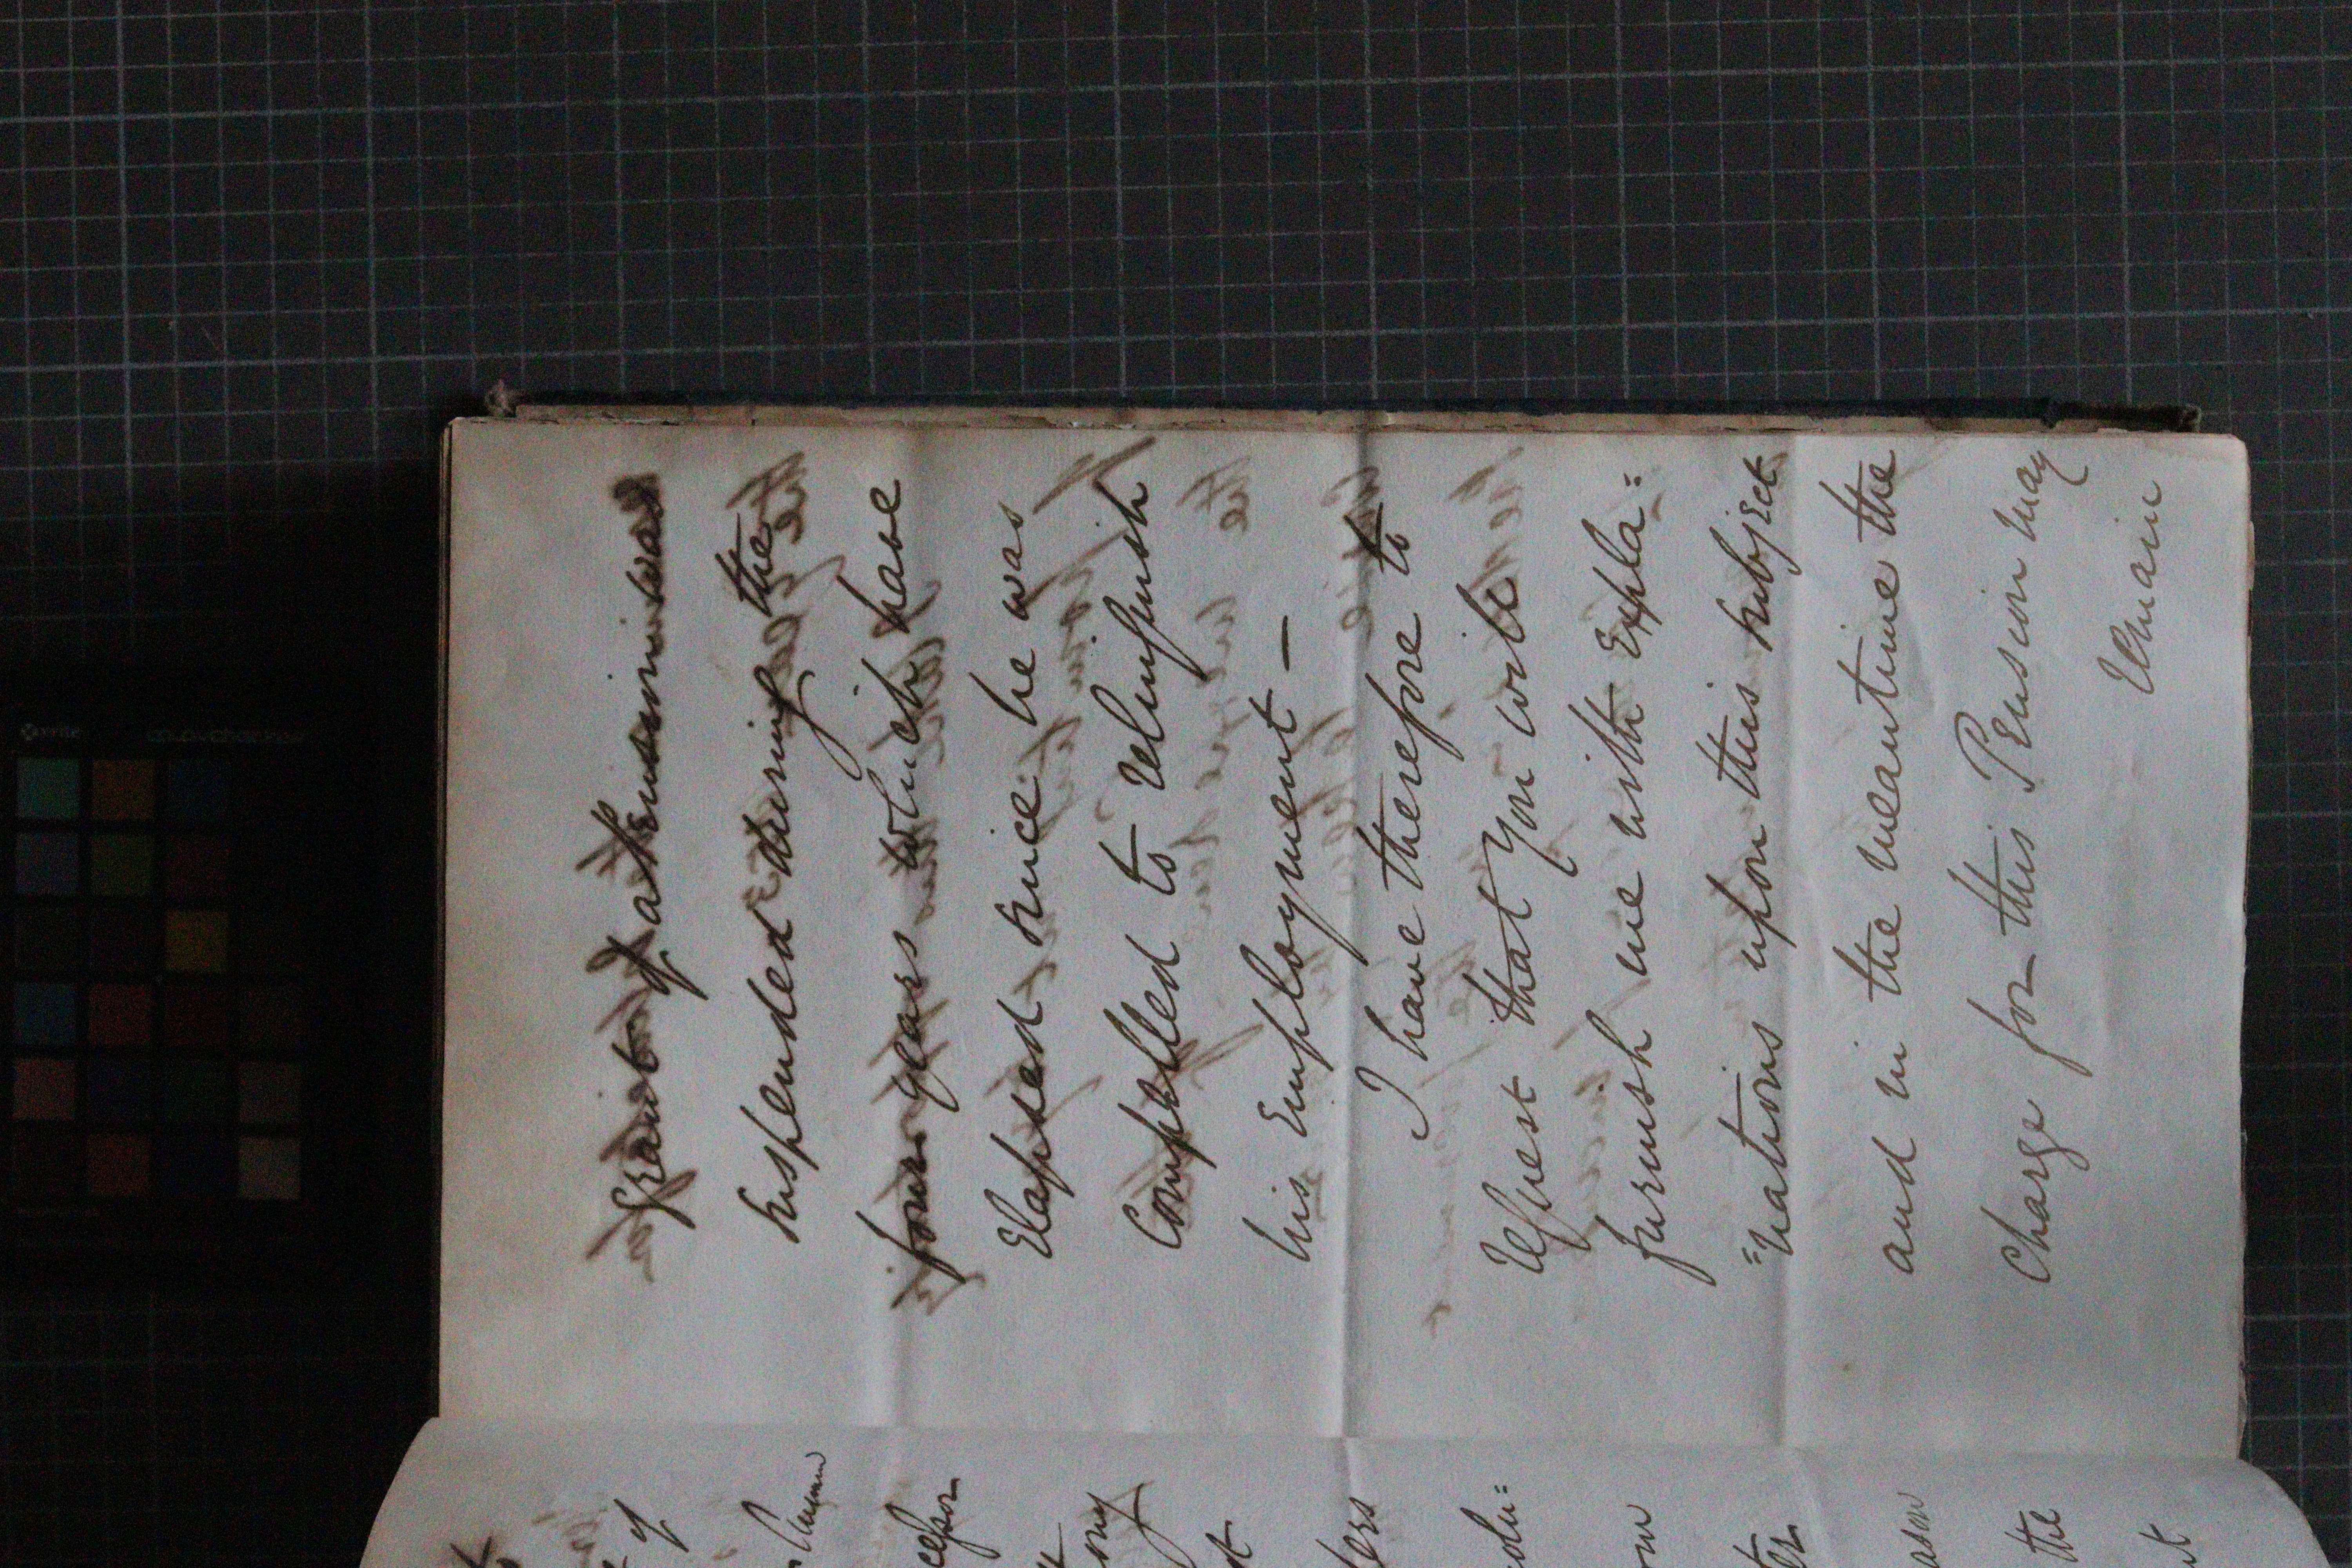 Grant of a Pension was
suspended during the
four years which have
Elapsed since he was
Compelled to relinquish
his Employment —
I have therefore to
request that you will
furnish me with Expla=
=nations upon this subject
and in the meantime the
Charge for this Pension may
remain
of
cessor
ony
ders
olu=
om
ason
the